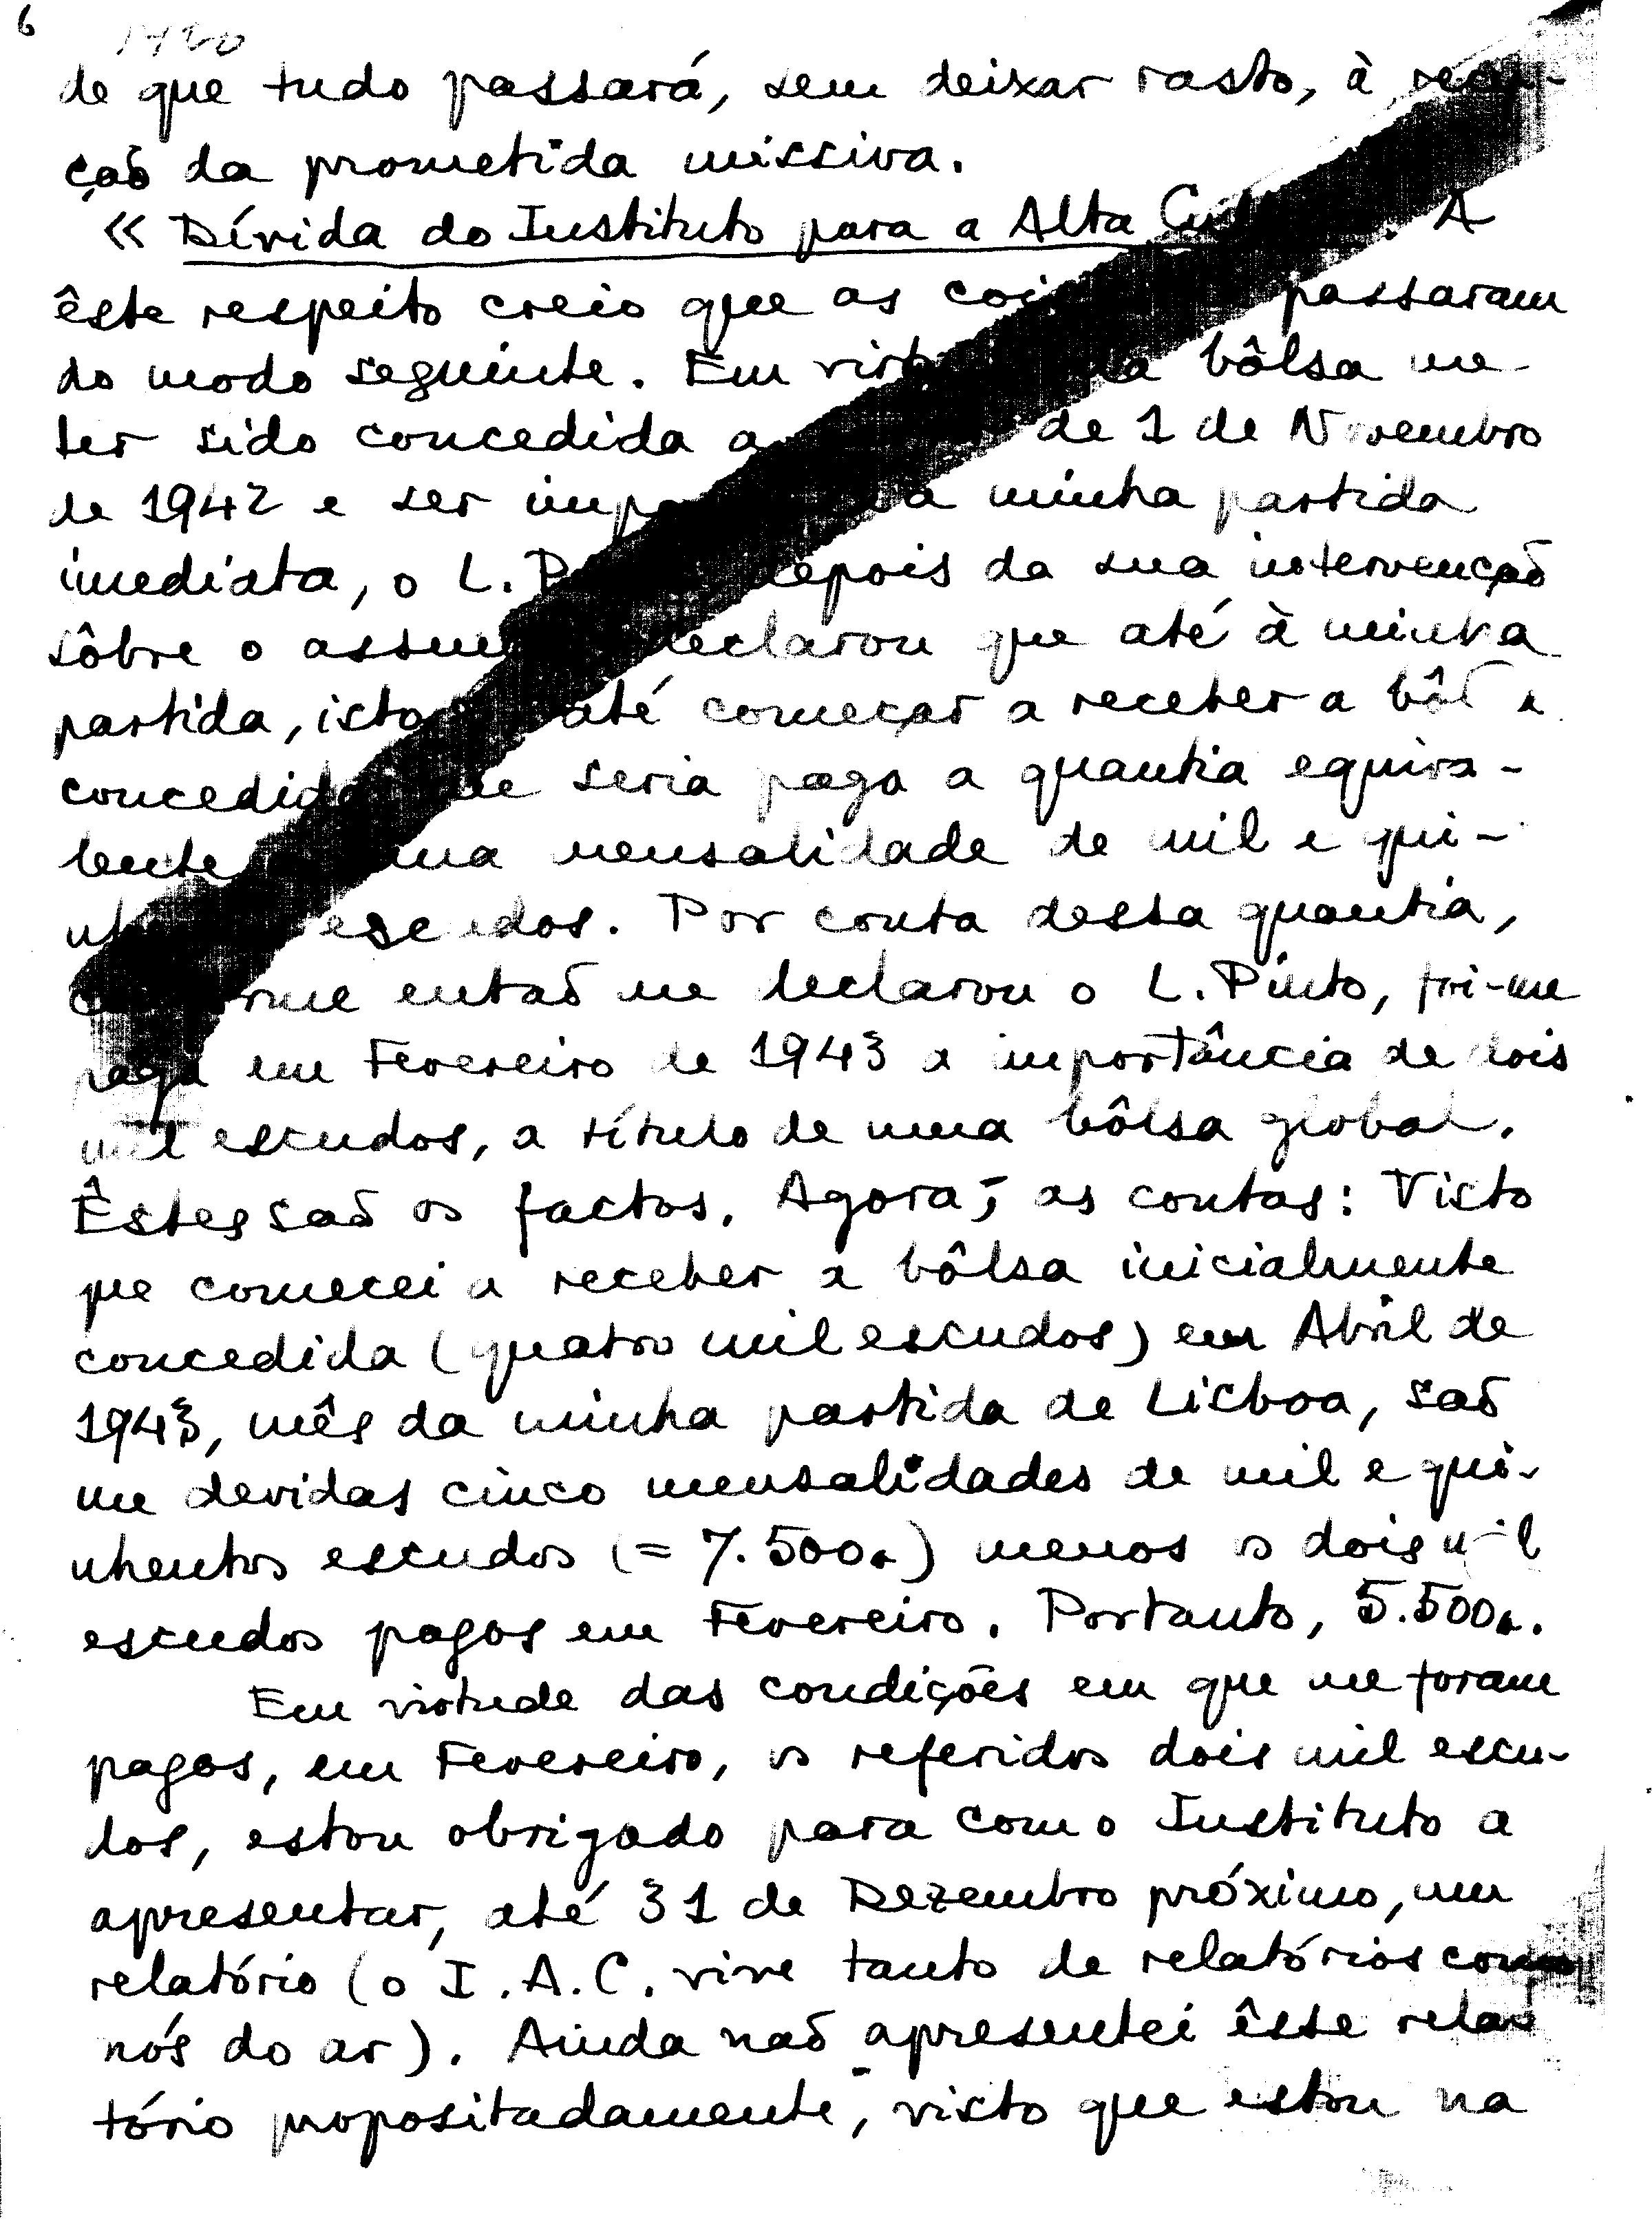 6
de que tudo passará, sem deixar rasto, à
ção da prometida missiva.
« Dívida do Instituto para a Alta A
êste respeito creio que as passaram
do modo seguinte. Em bôlsa me
ter sido concedida a de 1 de Novembro
de 1942 e ser a minha partida
imediata, o L. depois da sua intervenção
sôbre o declarou que até à minha
partida, isto até começar a receber a
concedida me seria paga a quantia equiva-
lente uma mensalidade de mil e qui-
escudos. Por conta dessa quantia,
então me declarou o L. Pinto, foi-me
paga em Fevereiro de 1943 a importância de dois
mil escudos, a título de uma bôlsa global.
Êstes são os factos. Agora, as contas: Visto
que comecei a receber a bôlsa inicialmente
concedida (quatro mil escudos) em Abril de
1943, mês da minha partida de Lisboa, são
me devidas cinco mensalidades de mil e qui-
nhentos escudos (= 7.500$) menos os dois mil
escudos pagos em Fevereiro. Portanto, 5.500$.
Em virtude das condições em que me foram
pagos, em Fevereiro, os referidos dois mil escu-
dos, estou obrigado para com o Instituto a
apresentar, até 31 de Dezembro próximo, um
relatório (o I.A.C. vive tanto de relatórios como
nós do ar). Ainda não apresentei êsse rela-
tório propositadamente, visto que estou na